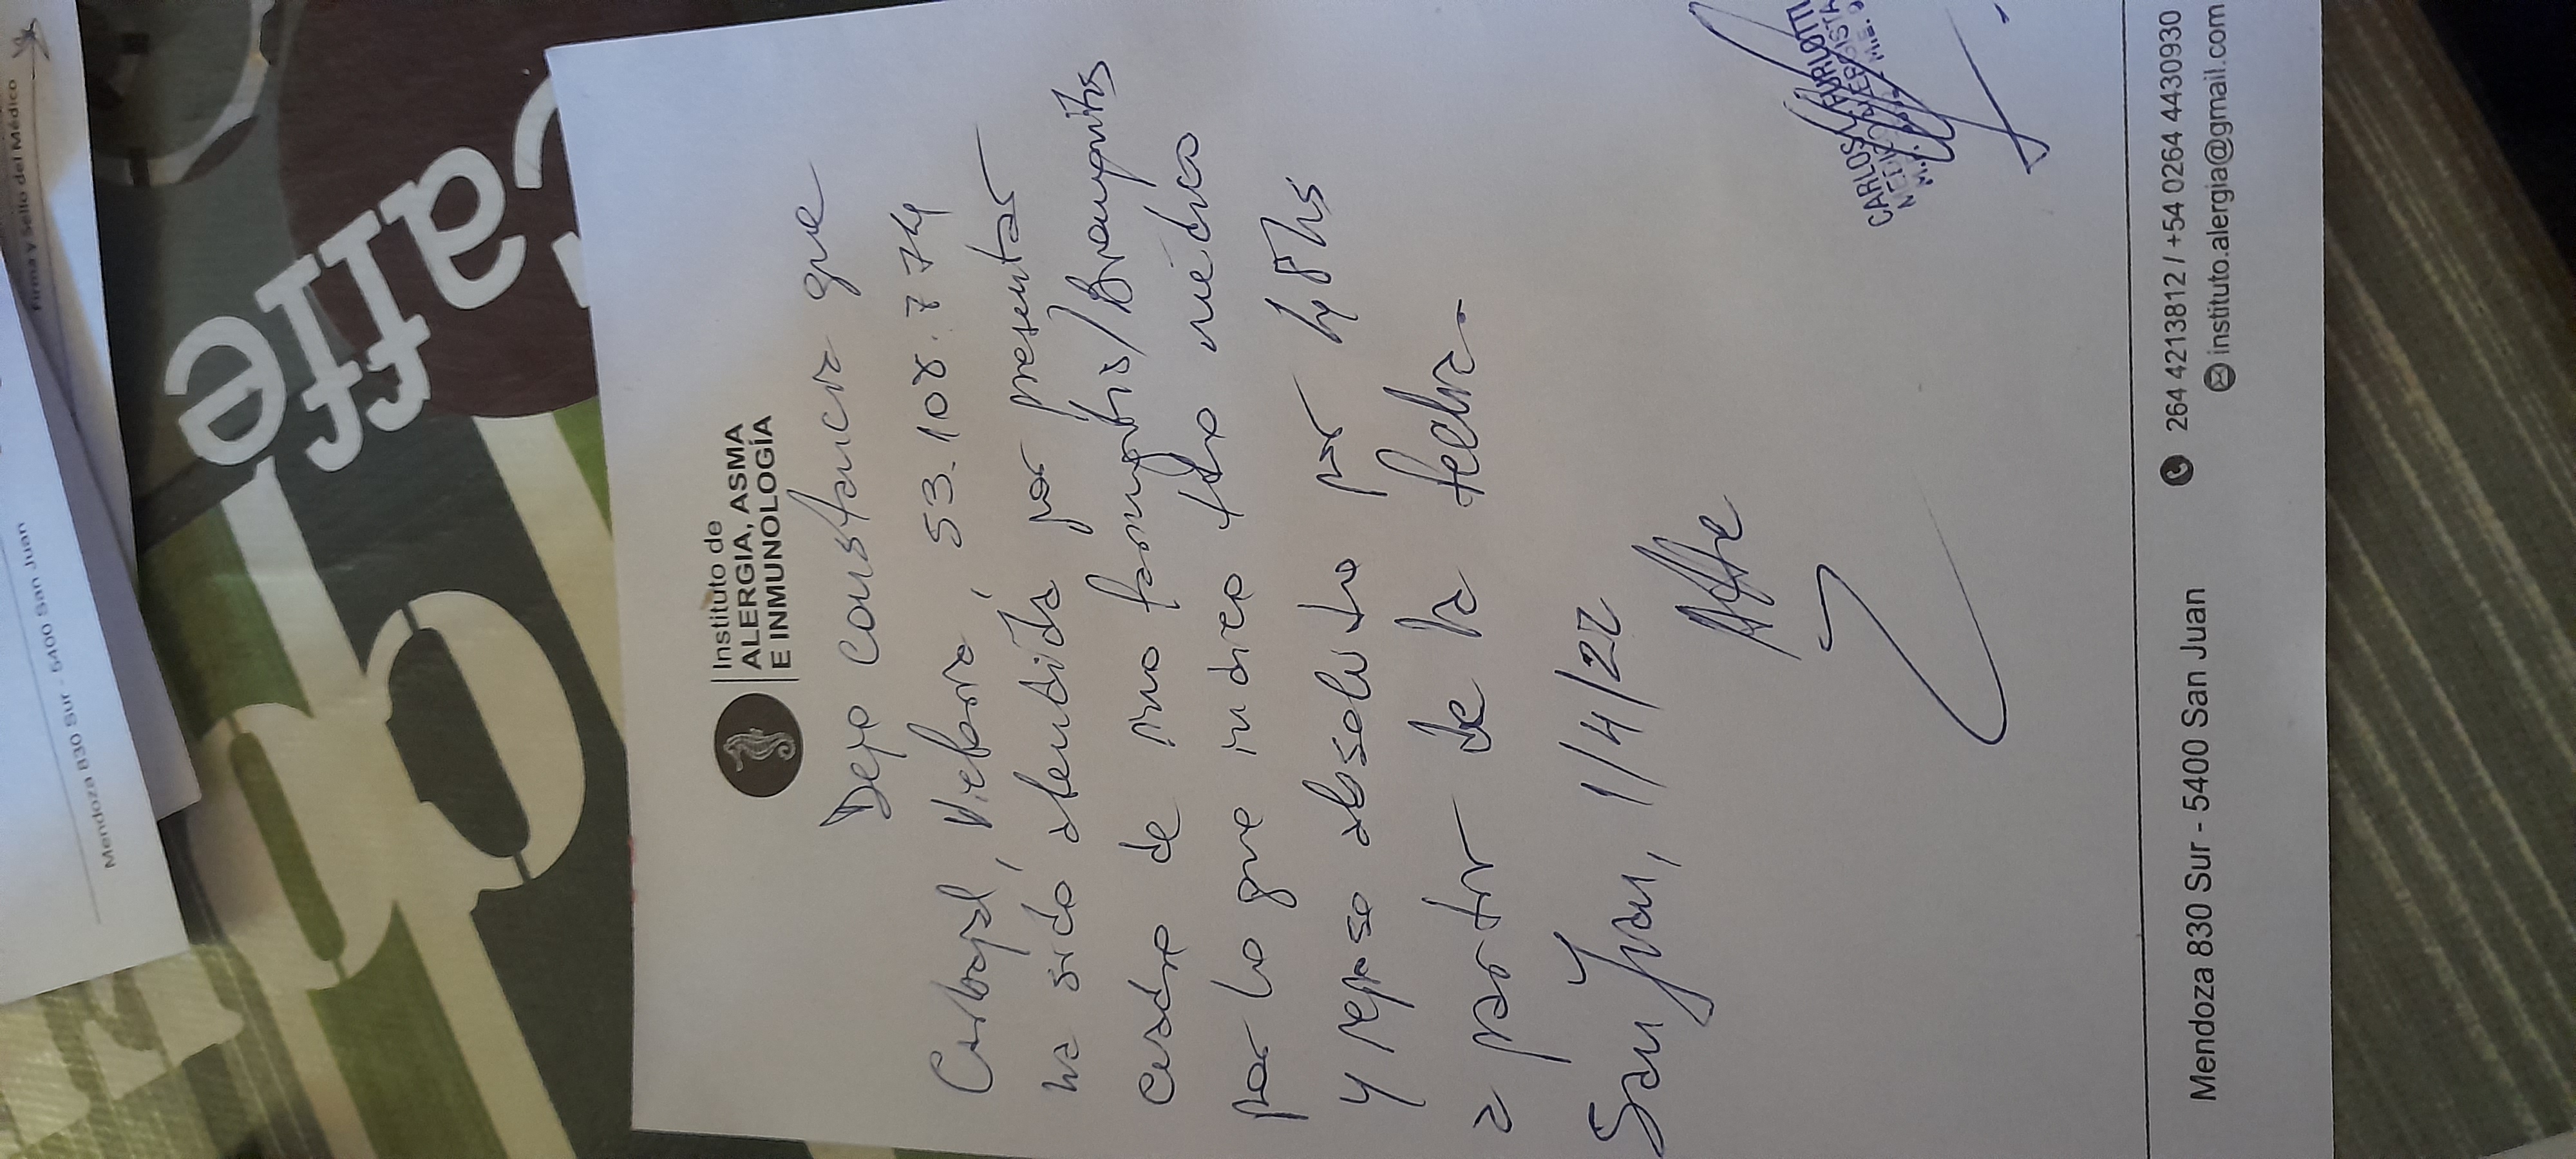 Instituto de
ALERGIA, ASMA
E INMUNOLOGÍA
Dejo constancia que
Carbajal, Victoria, 53.108.774
ha sido atendida por presentar
cuadro de rino faringitis/Bronquitis
por lo que indico tto médico
y reposo absoluto por 48hs
a partir de la fecha.
San Juan, 1/4/22
Atte
CARLOS
Mendoza 830 Sur - 5400 San Juan
264 4213812 / +54 0264 4430930
instituto.alergia@gmail.com
Firma y Sello del Médico
Mendoza 830 Sur - 5400 San Juan
Caffe